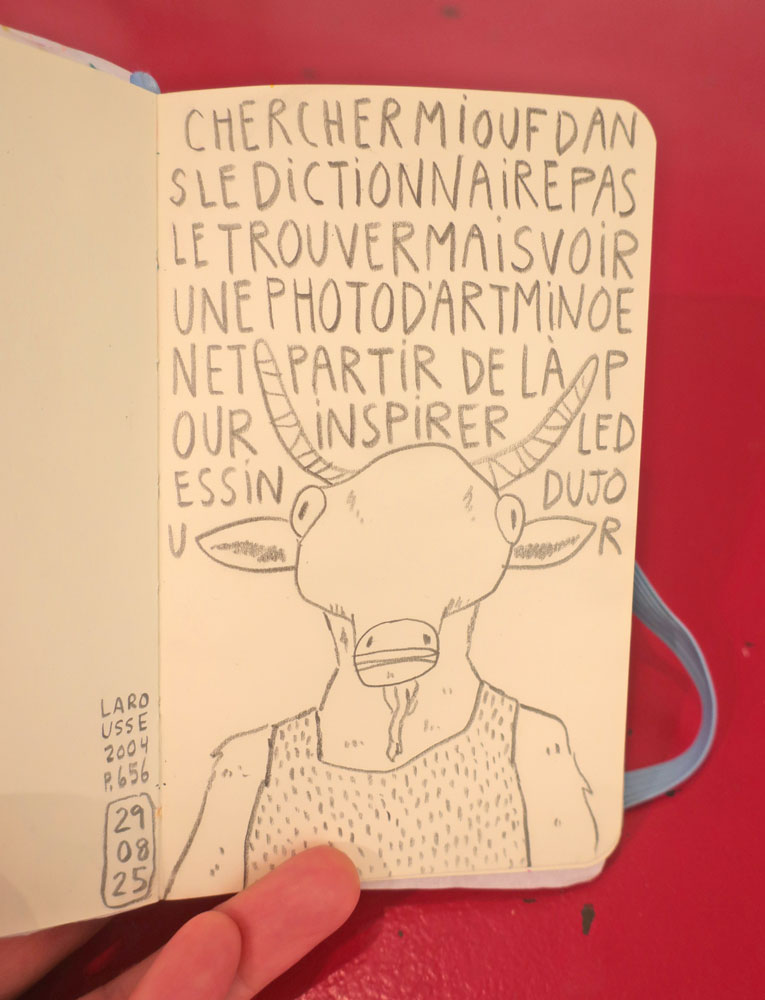 CHERCHERMIOUFDAN
SLEDICTIONNAIREPAS
LETROUVERMAISVOIR
UNEPHOTOD'ARTMINOE
NET PARTIR DE LÀ P
OUR INSPIRER LED
ESSIN DUJO
U R
LARO
USSE
2004
P.656
29
08
25